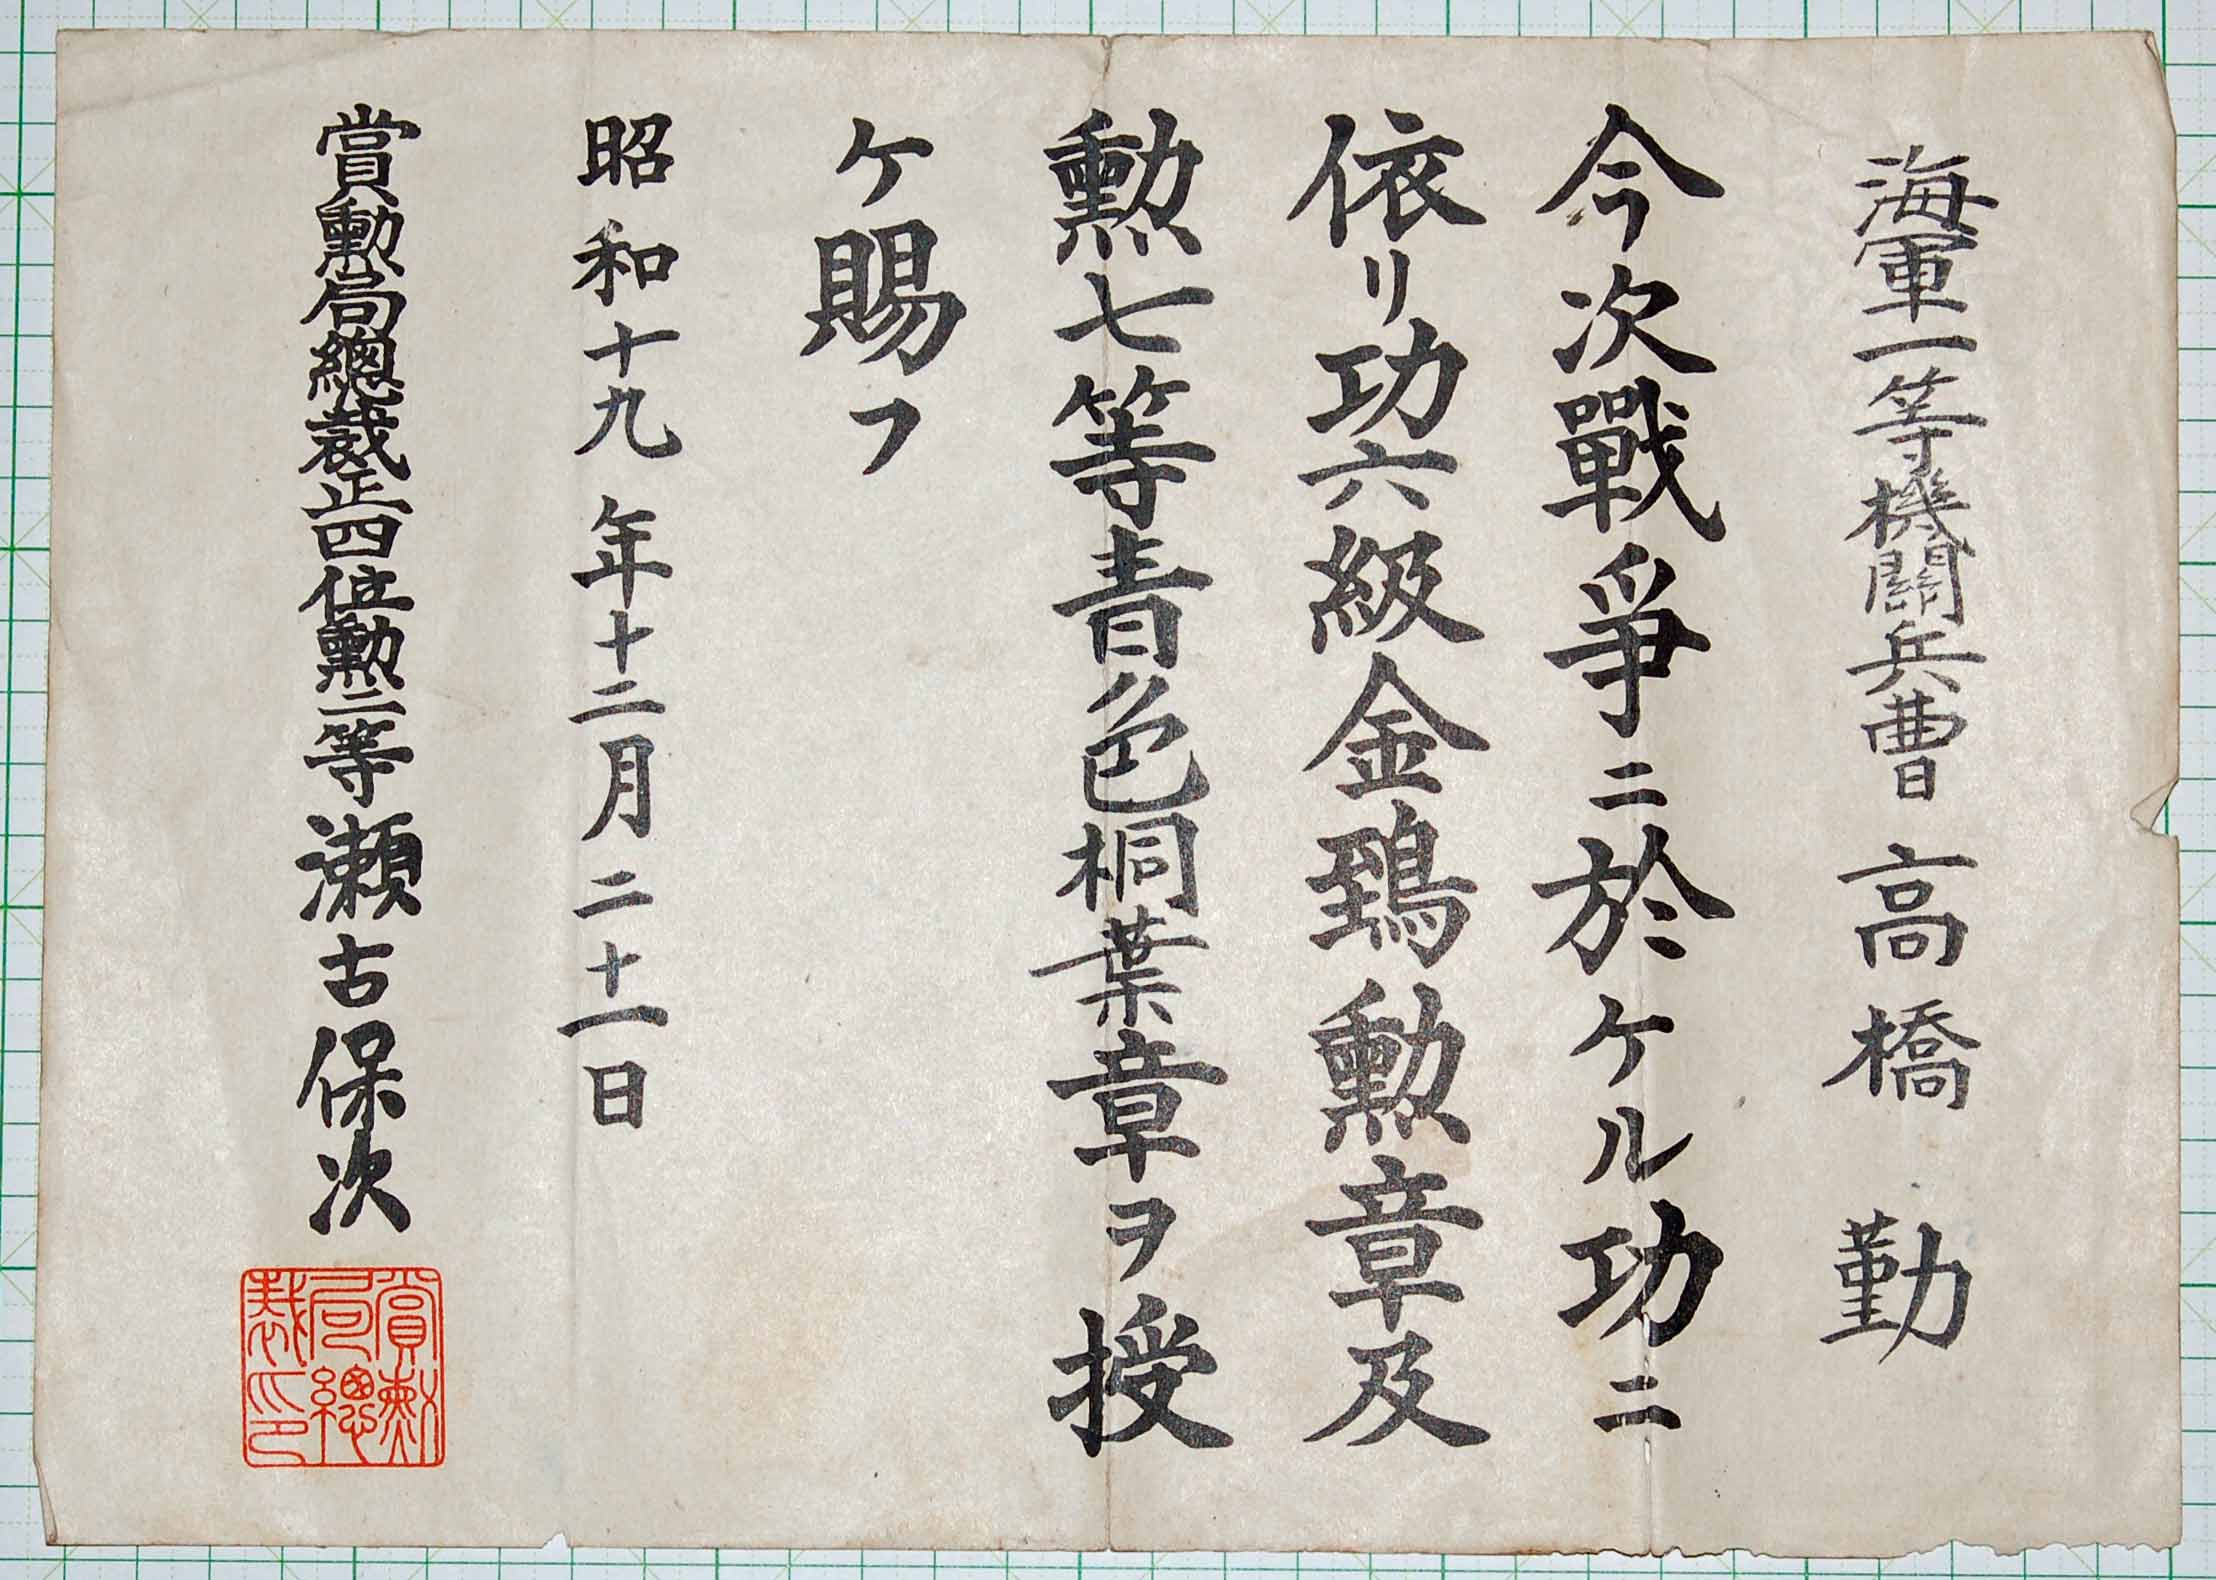 海軍一等機關兵曹 高橋 勤
今次戰爭ニ於ケル功ニ
依リ功六級金鵄勳章及
勲七等青色桐葉章ヲ授
ケ賜フ
昭和十九年十二月二十一日
賞勳局總裁正四位勳二等瀬古保次
賞勳
局總
裁印